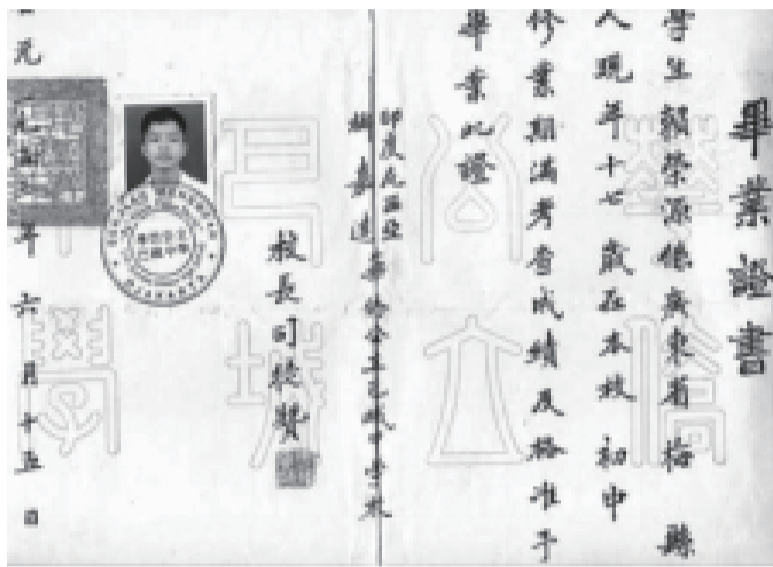 畢業證書
學生賴榮源係廣東省梅縣
人現年十七歲在本校初中
修業期滿考查成績及格准予
畢業此證
印度尼西亞
椰嘉達華僑公立巴城中學校
校長司徒贊
元一九五 年六月十五日
華僑公立巴城中學